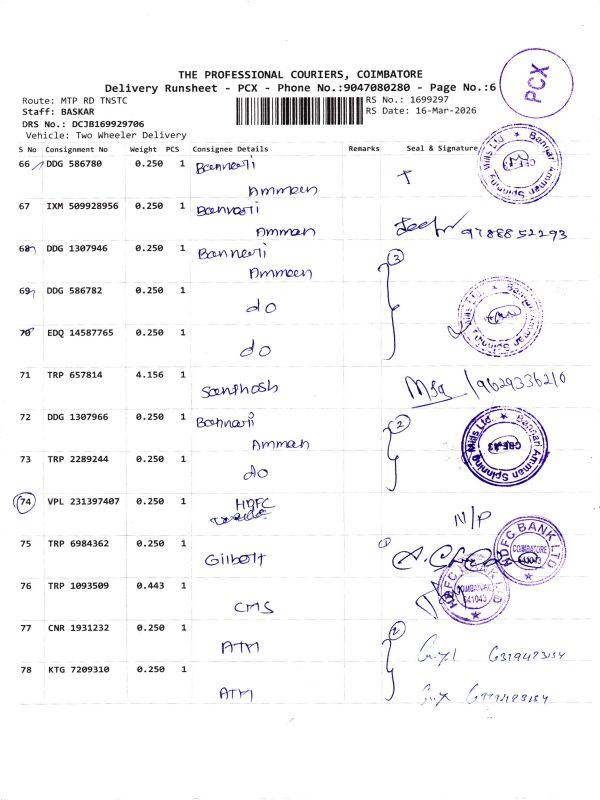 THE PROFESSIONAL COURIERS, COIMBATORE
Delivery Runsheet - PCX - Phone No.:9047080280 - Page No.:6
PCX
Route: MTP RD TNSTC
RS No.: 1699297
Staff: BASKAR
RS Date: 16-Mar-2026
DRS No.: DCJB169929706
Vehicle: Two Wheeler Delivery
S No Consignment No Weight PCS Consignee Details Remarks Seal & Signature
66 DDG 586780 0.250 1 Bannari
Amman
Bannari Amman Spinning Mills Ltd.
67 IXM 509928956 0.250 1 Bannari
Amman
9788852293
68 DDG 1307946 0.250 1 Bannari
Amman
3
69 DDG 586782 0.250 1
do
Bannari Amman Spinning Mills Ltd.
70 EDQ 14587765 0.250 1
do
71 TRP 657814 4.156 1
Santhosh
9629336210
72 DDG 1307966 0.250 1 Bannari
Amman
2
Bannari Amman Spinning Mills Ltd.
CBE-43
73 TRP 2289244 0.250 1
do
74 VPL 231397407 0.250 1 HDFC
N/P
75 TRP 6984362 0.250 1
Gilbott
1
HDFC BANK LTD
COIMBATORE
641043
76 TRP 1093509 0.443 1
CMS
HDFC BANK LTD
COIMBATORE
641043
77 CNR 1931232 0.250 1
ATM
2
78 KTG 7209310 0.250 1
ATM